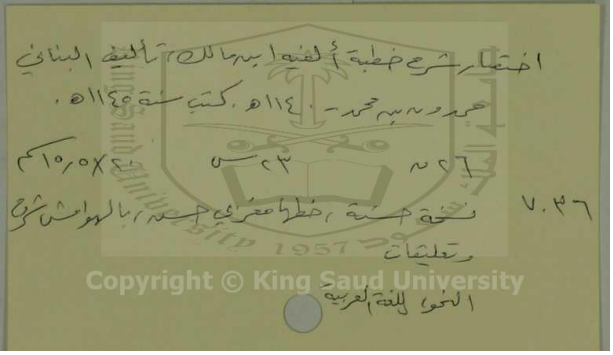 اختصار شرح خطبة ألفية ابن مالك، تأليف البناني
حمدون بن محمد - ١١٤٠هـ. كتب سنة ١١٤٥هـ.
٢٦ ق ٢٣ س ٢٠×١٥٫٥ سم
٧٠٣٦ نسخة حسنة، خطها مغربي حسن، بالهوامش شروح
وتعليقات
النحو، اللغة العربية
1957
Copyright © King Saud University